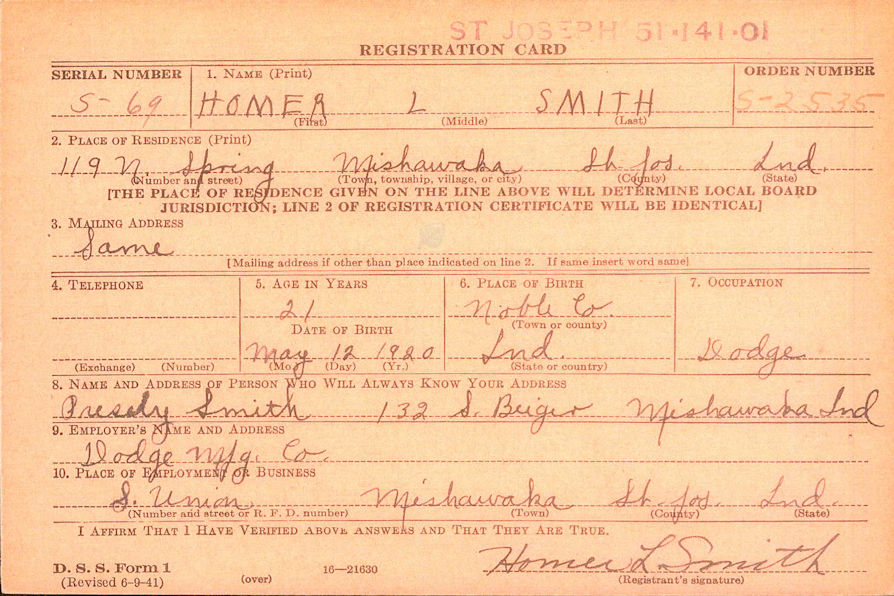 ST JOSEPH 51·141·01
REGISTRATION CARD
SERIAL NUMBER 1. NAME (Print) ORDER NUMBER
S- 69 HOMER L SMITH S-2535
(First) (Middle) (Last)
2. PLACE OF RESIDENCE (Print)
119 N. Spring Mishawaka St. Jos. Ind.
(Number and street) (Town, township, village, or city) (County) (State)
[THE PLACE OF RESIDENCE GIVEN ON THE LINE ABOVE WILL DETERMINE LOCAL BOARD
JURISDICTION; LINE 2 OF REGISTRATION CERTIFICATE WILL BE IDENTICAL]
3. MAILING ADDRESS
Same
[Mailing address if other than place indicated on line 2. If same insert word same]
4. TELEPHONE 5. AGE IN YEARS 6. PLACE OF BIRTH 7. OCCUPATION
21 Noble Co.
DATE OF BIRTH (Town or county)
May 12 1920 Ind. Dodge
(Exchange) (Number) (Mo.) (Day) (Yr.) (State or country)
8. NAME AND ADDRESS OF PERSON WHO WILL ALWAYS KNOW YOUR ADDRESS
Smith 132 S. Beiger Mishawaka Ind
9. EMPLOYER'S NAME AND ADDRESS
Dodge Mfg. Co.
10. PLACE OF EMPLOYMENT OR BUSINESS
S. Union Mishawaka St. Jos. Ind.
(Number and street or R. F. D. number) (Town) (County) (State)
I AFFIRM THAT I HAVE VERIFIED ABOVE ANSWERS AND THAT THEY ARE TRUE.
Homer L. Smith
D. S. S. Form 1
(Revised 6-9-41) (over) 16—21630 (Registrant's signature)